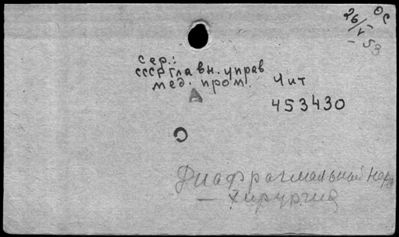 ОС
26/V-53
сер.:
СССР главн. управ
мед. пром.
Чит
А
453430
Диафрагмальный нерв
— хирургия